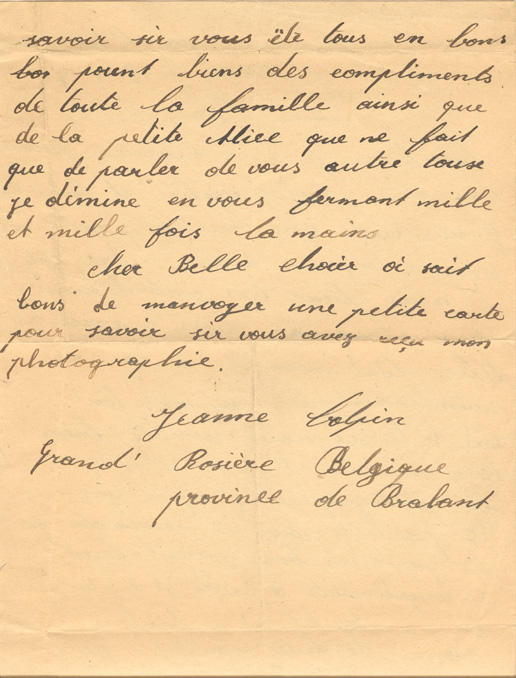 savoir sir vous ëte tous en bons
pount biens des compliments
de toute la famille ainsi que
de la petite Alice que ne fait
que de parler de vous autre touse
je démine en vous fermont mille
et mille fois la mains
cher Belle choier oi sait
bons de manvoyer une petite carte
pour savoir sir vous avez reçu mon
photographie.
Jeanne Colpin
Grand' Rosière Belgique
province de Brabant